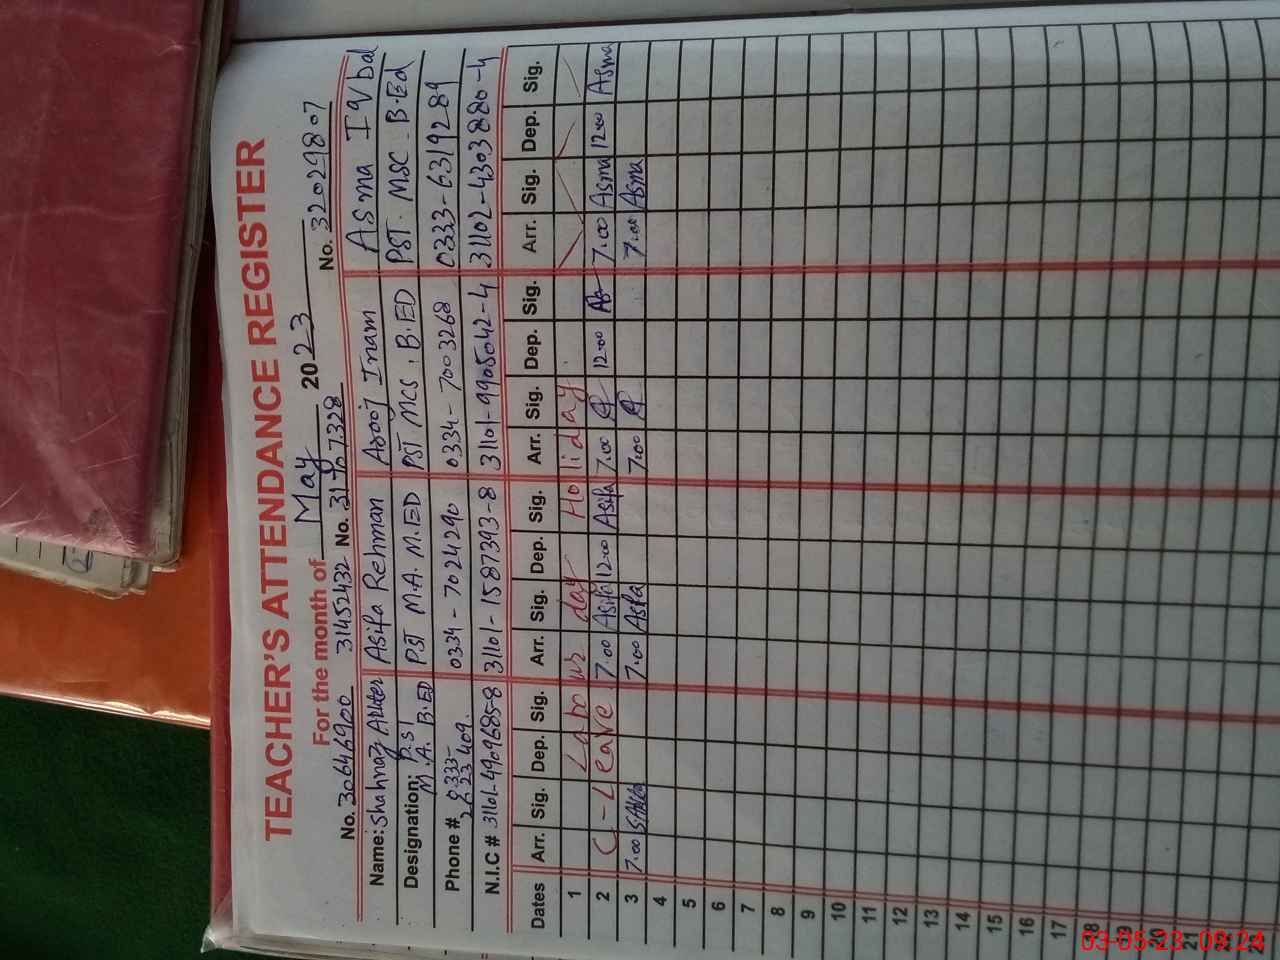 TEACHER'S ATTENDANCE REGISTER
For the month of May 2023
No. 30646900 31452432 No. 31307328 No. 32029807
Name: Shahnaz Akhter Asifa Rehman Arooj Inam Asma Iqbal
Designation; PST M.A. B.ED PST M.A. M.ED PST MCS, B.ED PST. MSC. B.Ed
Phone # 0334-7024290 0334-7003268 0333-6319289
N.I.C # 31101-4909685-8 31101-1587393-8 31101-9905042-4 31102-4303880-4
Dates Arr. Sig. Dep. Sig. Arr. Sig. Dep. Sig. Arr. Sig. Dep. Sig. Arr. Sig. Dep. Sig.
1 Labour day Holiday
2 C-Leave 7.00 Asifa 12.00 Asifa 7.00 12.00 7.00 Asma 12.00 Asma
3 7.00 7.00 Asifa 7.00 7.00 Asma
4
5
6
7
8
9
10
11
12
13
14
15
16
17
18
19
20
21
22
23
03-05-23 09:24